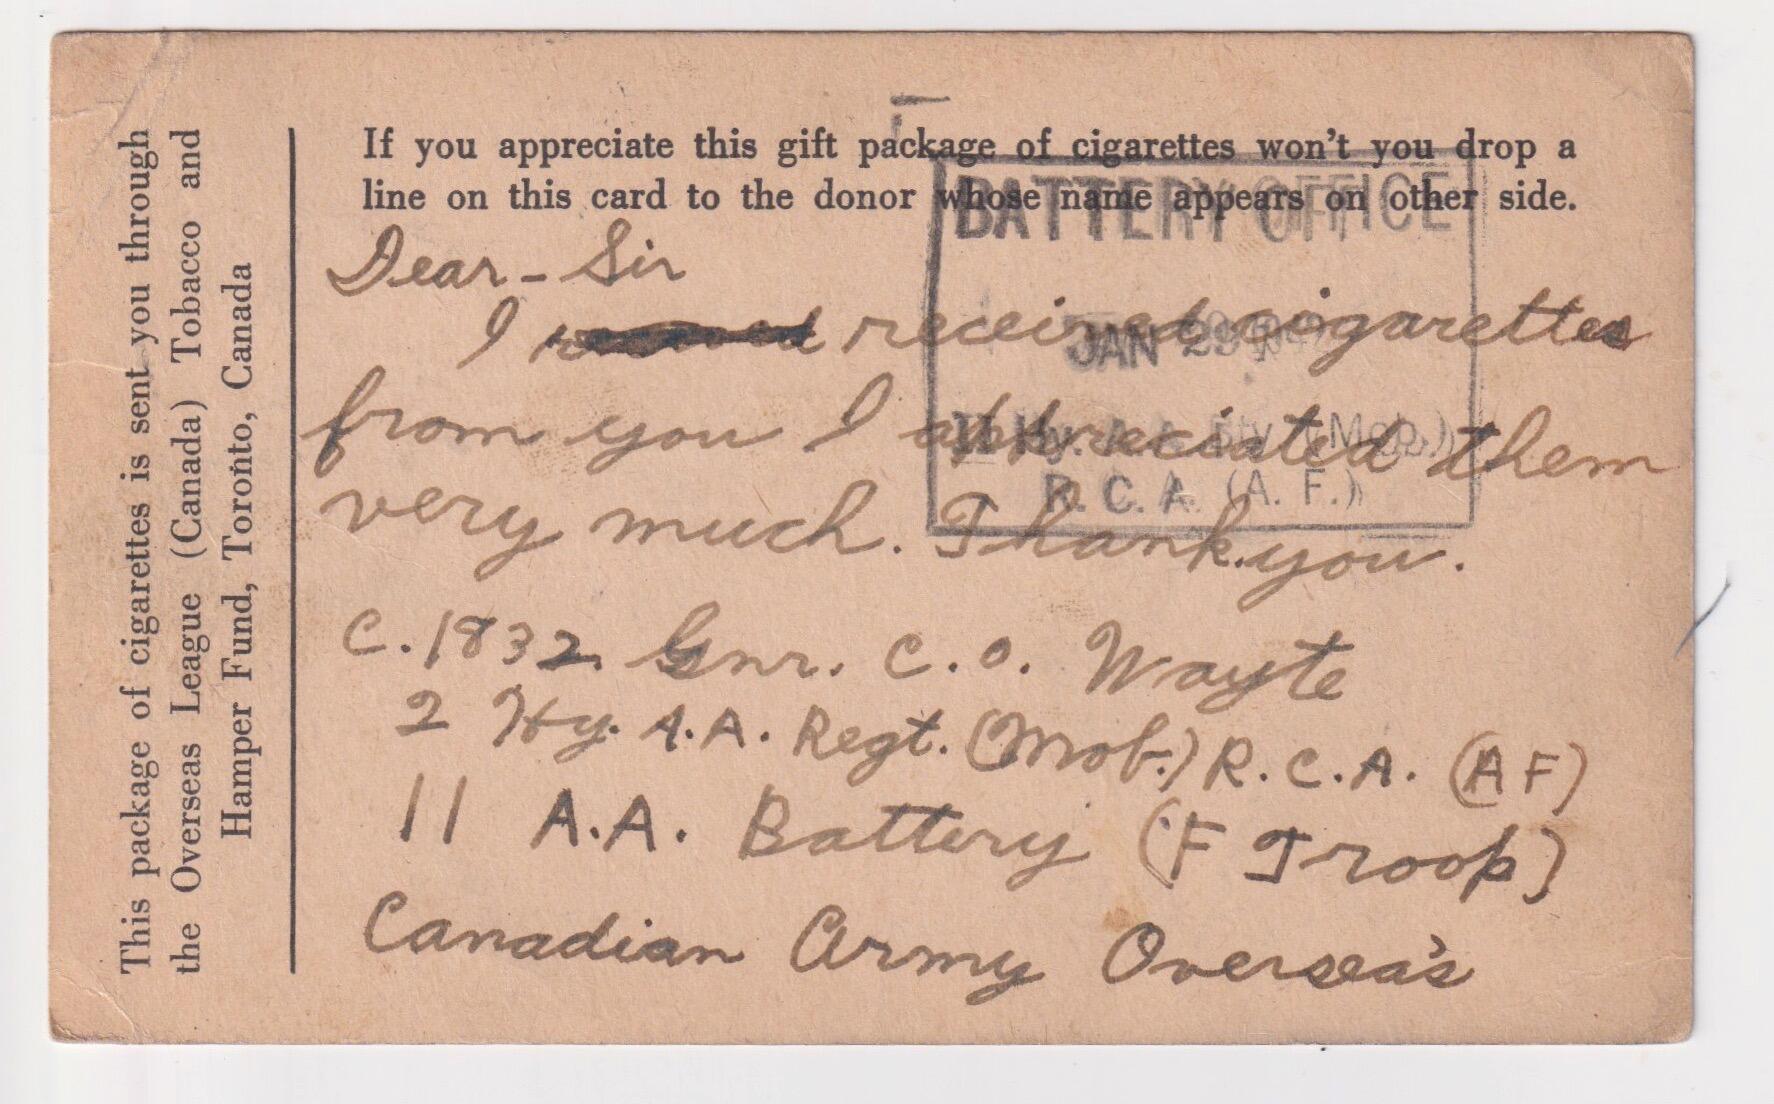 This package of cigarettes is sent you through
the Overseas League (Canada) Tobacco and
Hamper Fund, Toronto, Canada
If you appreciate this gift package of cigarettes won't you drop a
line on this card to the donor whose name appears on other side.
BATTERY OFFICE
JAN 29
11 Hy. A. A. Bty. (Mob.)
R. C. A. (A. F.)
Dear - Sir
I received cigarettes
from you I appreciated them
very much. Thank.you.
C.1832. Gnr. C.O. Wayte
2 Hy. A.A. Regt. (Mob.) R.C.A. (AF)
11 A.A. Battery (F Troop)
Canadian Army Oversea's